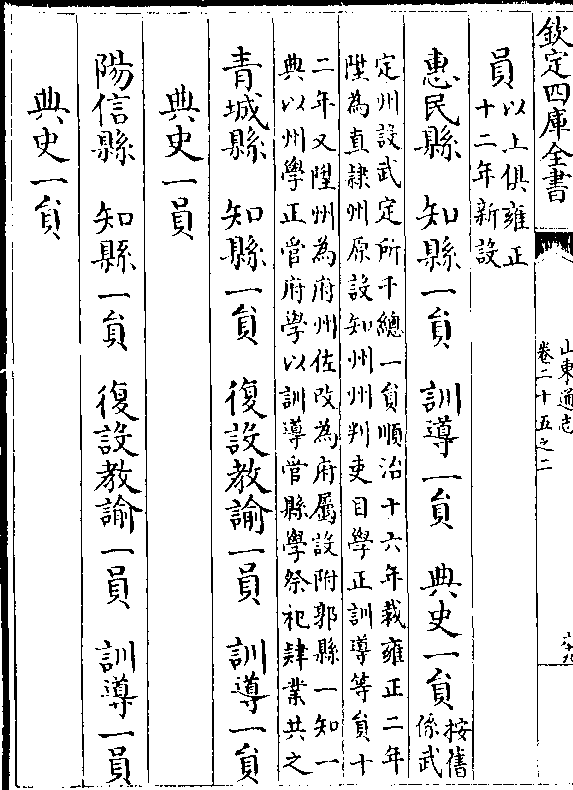 欽定四庫全書
山東通志
卷二十五之二
員以上俱雍正
十二年新設
惠民縣 知縣一員 訓導一員 典史一員按舊
係武
定州設武定所千總一員順治十六年裁雍正二年
陞為直隷州原設知州州判吏目學正訓導等員十
二年又陞州為府州佐改為府屬設附郭縣一知一
典以州學正管府學以訓導管縣學祭祀肄業共之
青城縣 知縣一員 復設教諭一員 訓導一員
典史一員
陽信縣 知縣一員 復設教諭一員 訓導一員
典史一員